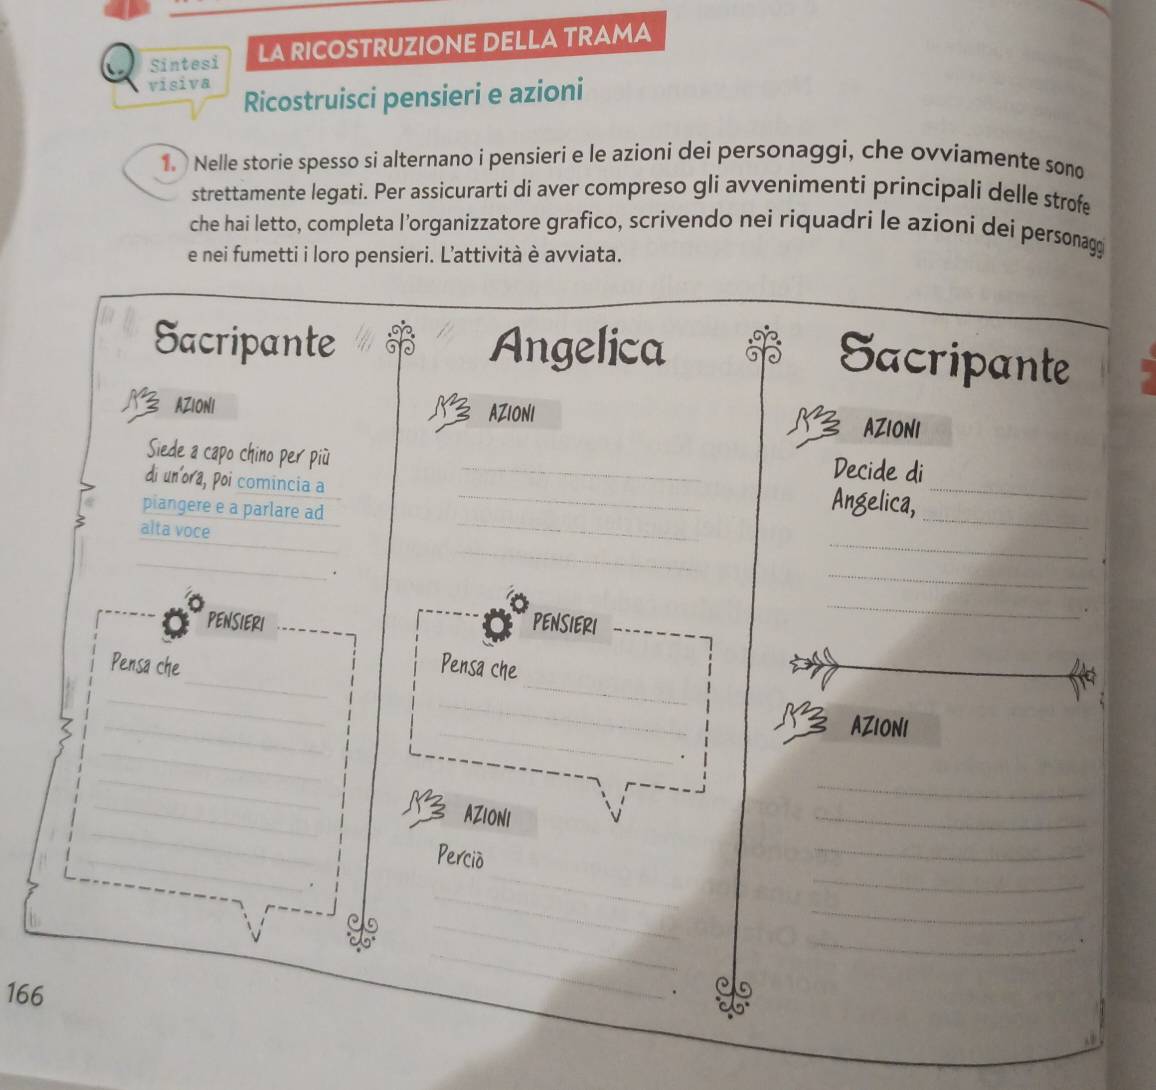 Sintesi
visiva
LA RICOSTRUZIONE DELLA TRAMA
Ricostruisci pensieri e azioni
1. Nelle storie spesso si alternano i pensieri e le azioni dei personaggi, che ovviamente sono
strettamente legati. Per assicurarti di aver compreso gli avvenimenti principali delle strofe
che hai letto, completa l'organizzatore grafico, scrivendo nei riquadri le azioni dei personagg
e nei fumetti i loro pensieri. L'attività è avviata.
Sacripante
AZIONI
Siede a capo chino per più
di un'ora, poi comincia a
piangere e a parlare ad
alta voce
.
PENSIERI
Pensa che
.
Angelica
AZIONI
PENSIERI
Pensa che
.
AZIONI
Perciò
.
Sacripante
AZIONI
Decide di
Angelica,
.
AZIONI
.
166